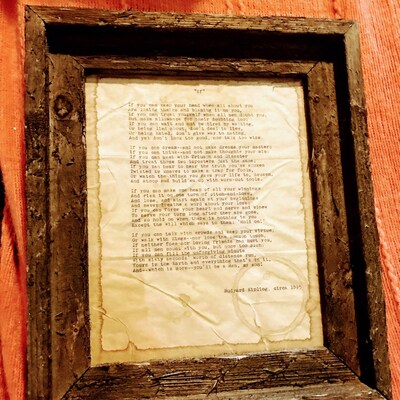 "IF"
If you can keep your head when all about you
Are losing theirs and blaming it on you,
If you can trust yourself when all men doubt you
But make allowance for their doubting too;
If you can wait and not be tired by waiting,
Or being lied about, don't deal in lies,
Or being hated, don't give way to hating,
And yet don't look too good, nor talk too wise.
If you can dream--and not make dreams your master;
If you can think--and not make thoughts your aim;
If you can meet with Triumph and Disaster
And treat those two impostors just the same,
If you can bear to hear the truth you've spoken
Twisted by knaves to make a trap for fools,
Or watch the things you gave your life to, broken,
And stoop and build 'em up with worn-out tools.
If you can make one heap of all your winnings
And risk it on one turn of pitch-and-toss,
And lose, and start again at your beginnings
And never breathe a word about your loss;
If you can force your heart and nerve and sinew
To serve your turn long after they are gone,
And so hold on when there is nothing in you
Except the will which says to them: "Hold on."
If you can talk with crowds and keep your virtue
Or walk with Kings--nor lose the common touch,
If neither foes nor loving friends can hurt you,
If all men count with you, but none too much;
If you can fill the unforgiving minute
With sixty seconds' worth of distance run,
Yours is the Earth and everything that's in it,
And--which is more--you'll be a Man, my son!
Rudyard Kipling circa